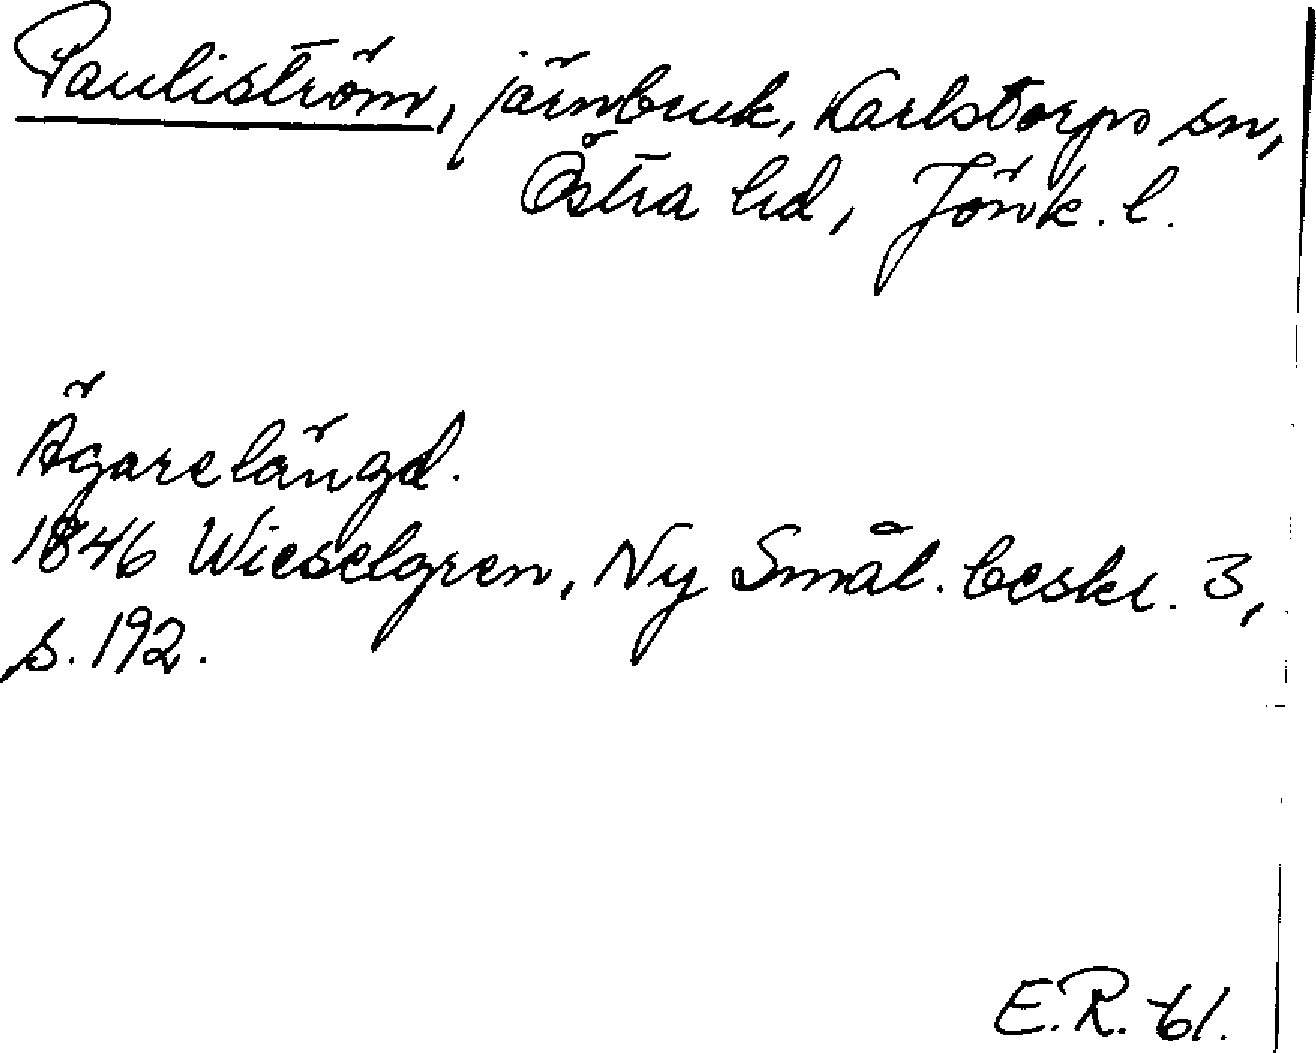 Pauliström, järnbruk, Karlstorps sn,
Östra hd, Jönk. l.
Ägarelängd.
1846 Wieselgren, Ny Smål. beskr. 3,
s. 192.
E.R. 61.